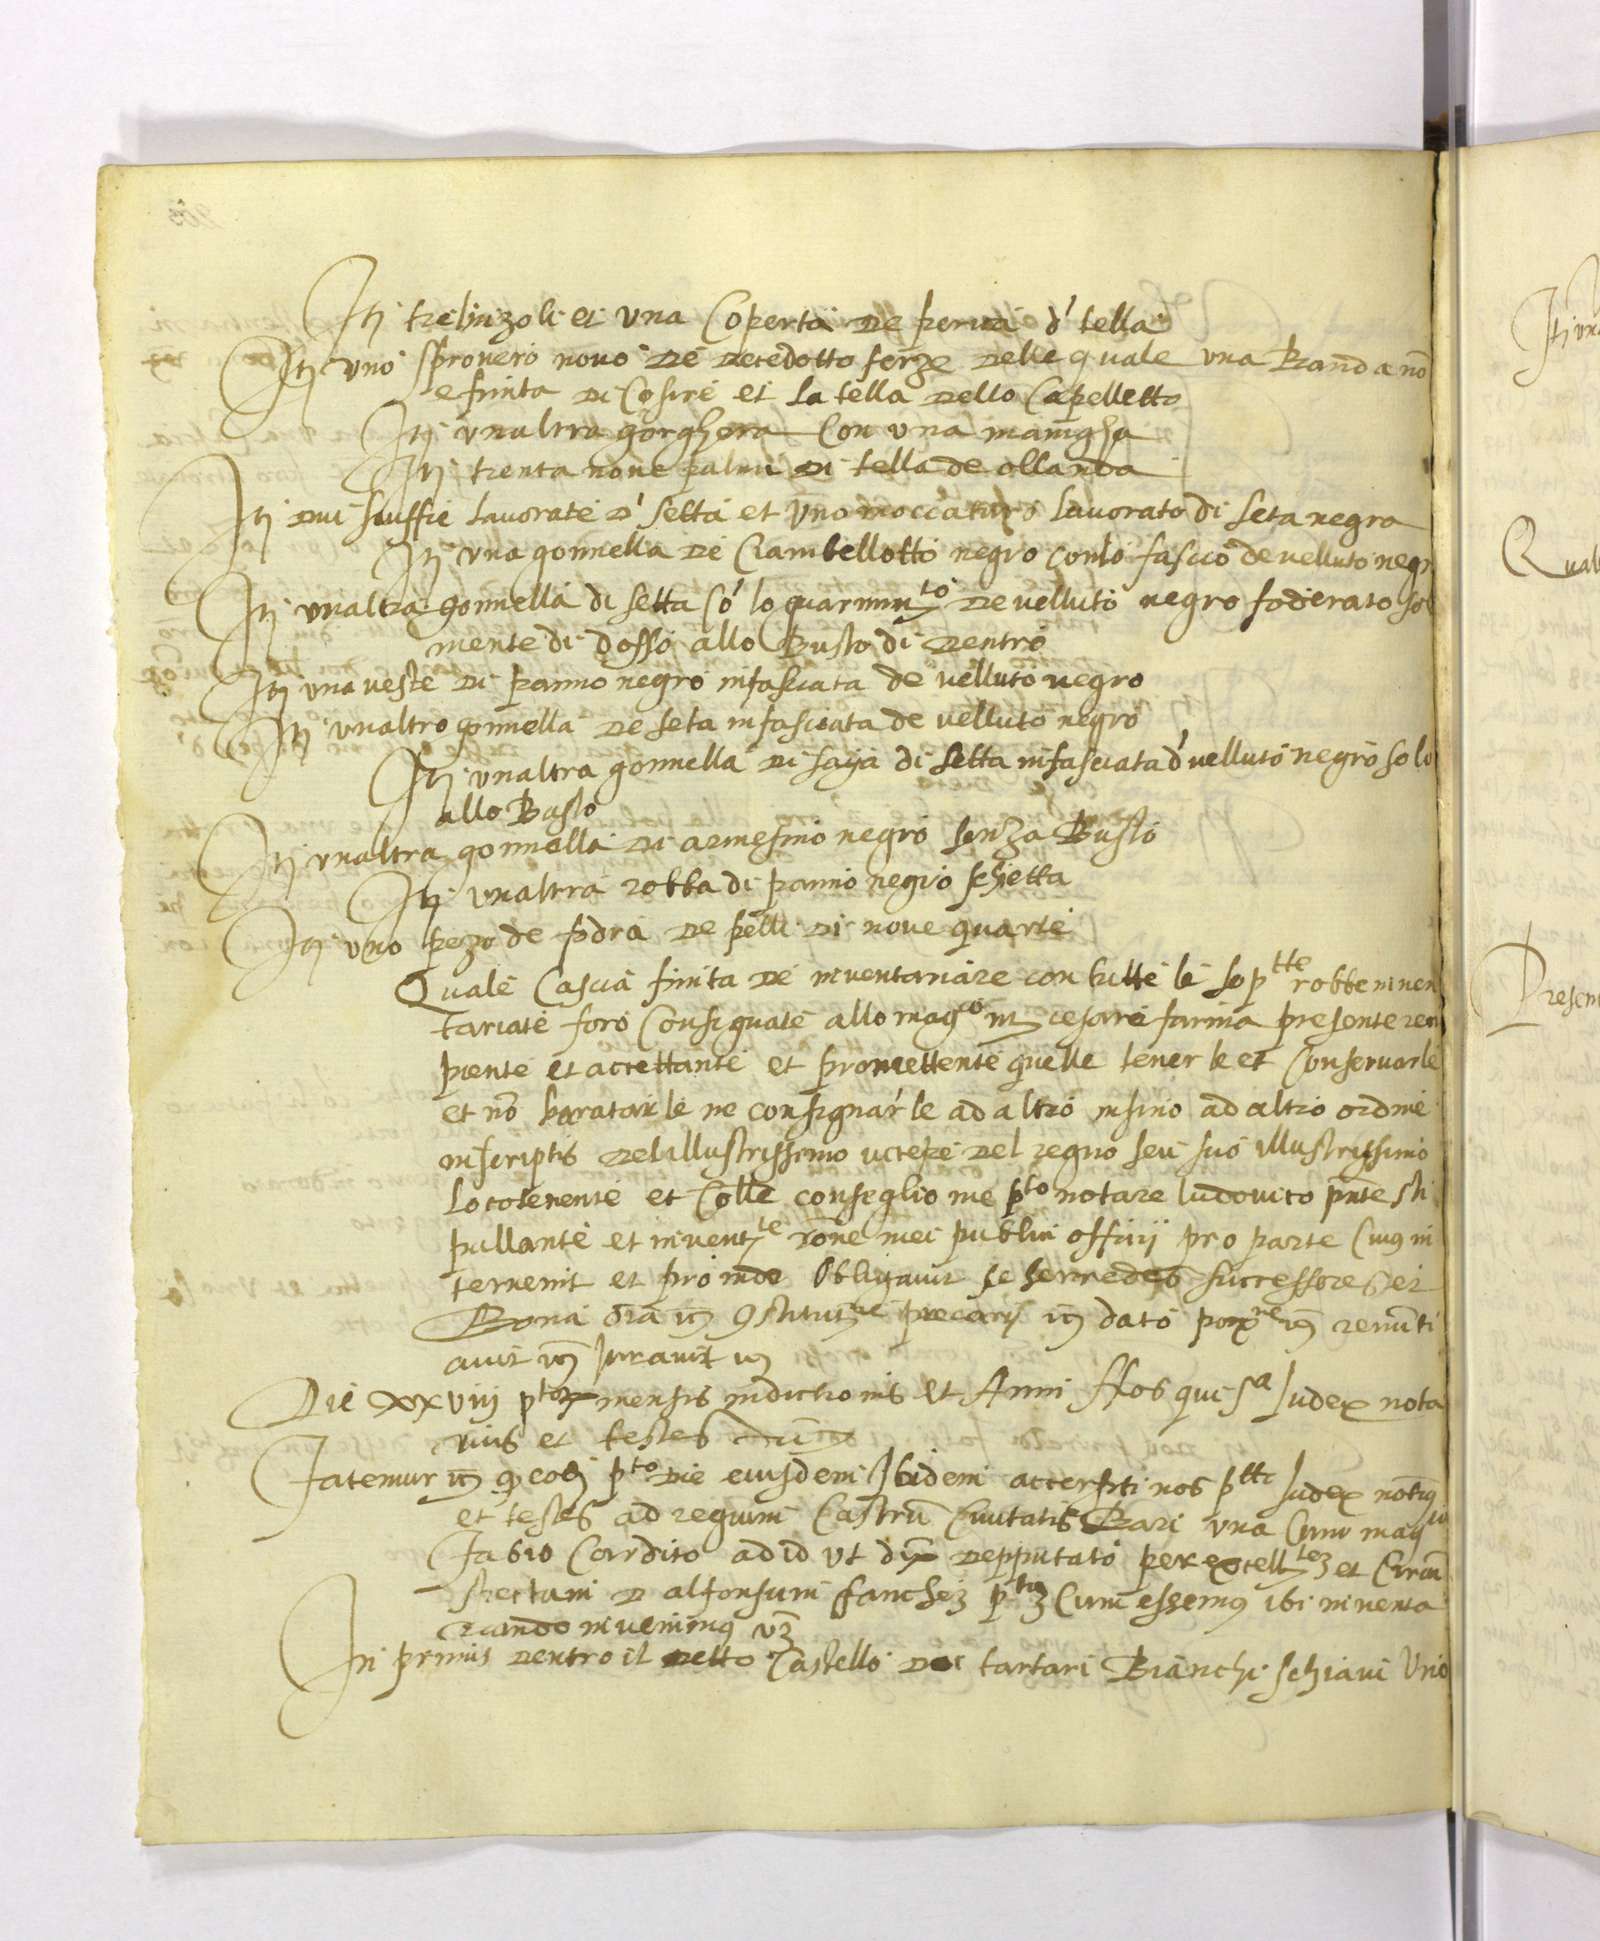 Itj tre linzoli et una Coperta de perna d' tella
Itj uno sproverio novo de decedotto ferze delle quale una Banda nō
e finita di Cosire et la tella dello Capelletto
Itj unaltra gorghera Con una manigha
Itj trenta nove palmi di tella de ollanda
Itj dui scuffie lavorate d' setta et uno moccaturo lavorato di seta negra
Itj una gonnella de Ciambellotto negro con lo fascio de velluto negr
Itj unaltra gonnella di setta cō lo guarnimto de velluto negro foderato sol
mente di dosso allo Busto di dentro
Itj una veste di panno negro infasciata de velluto negro
Itj unaltro gonnella de seta infasciata de velluto negro
Itj unaltra gonnella di saya di setta infasciata d' velluto negro solo
allo Busto
Itj unaltra gonnella di armesino negro senza Busto
Itj unaltra robba di panno negro schietta
Itj uno pezo de fodra de pelli di nove quarte
Quale Cascia finita de inventariare con tutte le soptte robbe inven
tariate foro Consignate allo magco m cesare farina presente reci
piente et accettante et promettente quelle tenerle et Conservarle
et nō baratarle ne consignarle ad altro insino ad altro ordine
inscriptis del illustrissimo vicere del regno seu suo illustrissimo
locotenente et Colle conseglio me pto notare ludovico pnte sti
pullante et inventte rōne mei publici officij pro parte Cuius in
tervenit et pro inde Obligavit se herredes successores et
Bona oīa precarij dato renūnti
avit Juravit
Die xxviij mensis indictionis et Anni Nos qui sa Judex nota
rius et testes
Fatemur eodē pto die eiusdem Ibidem accersiti nos pttc Judex notus
et testes ad regium Castrū Civitatis Bari una Cum magco
Fabio Cardito ad id ut depputato per excellte et Circū
spectum D alfonsum sanchez Cum essemus ibi inventa
riando invenimus vz
In primis dentro il detto Castello doi tartari Bianchi schiavi Uno